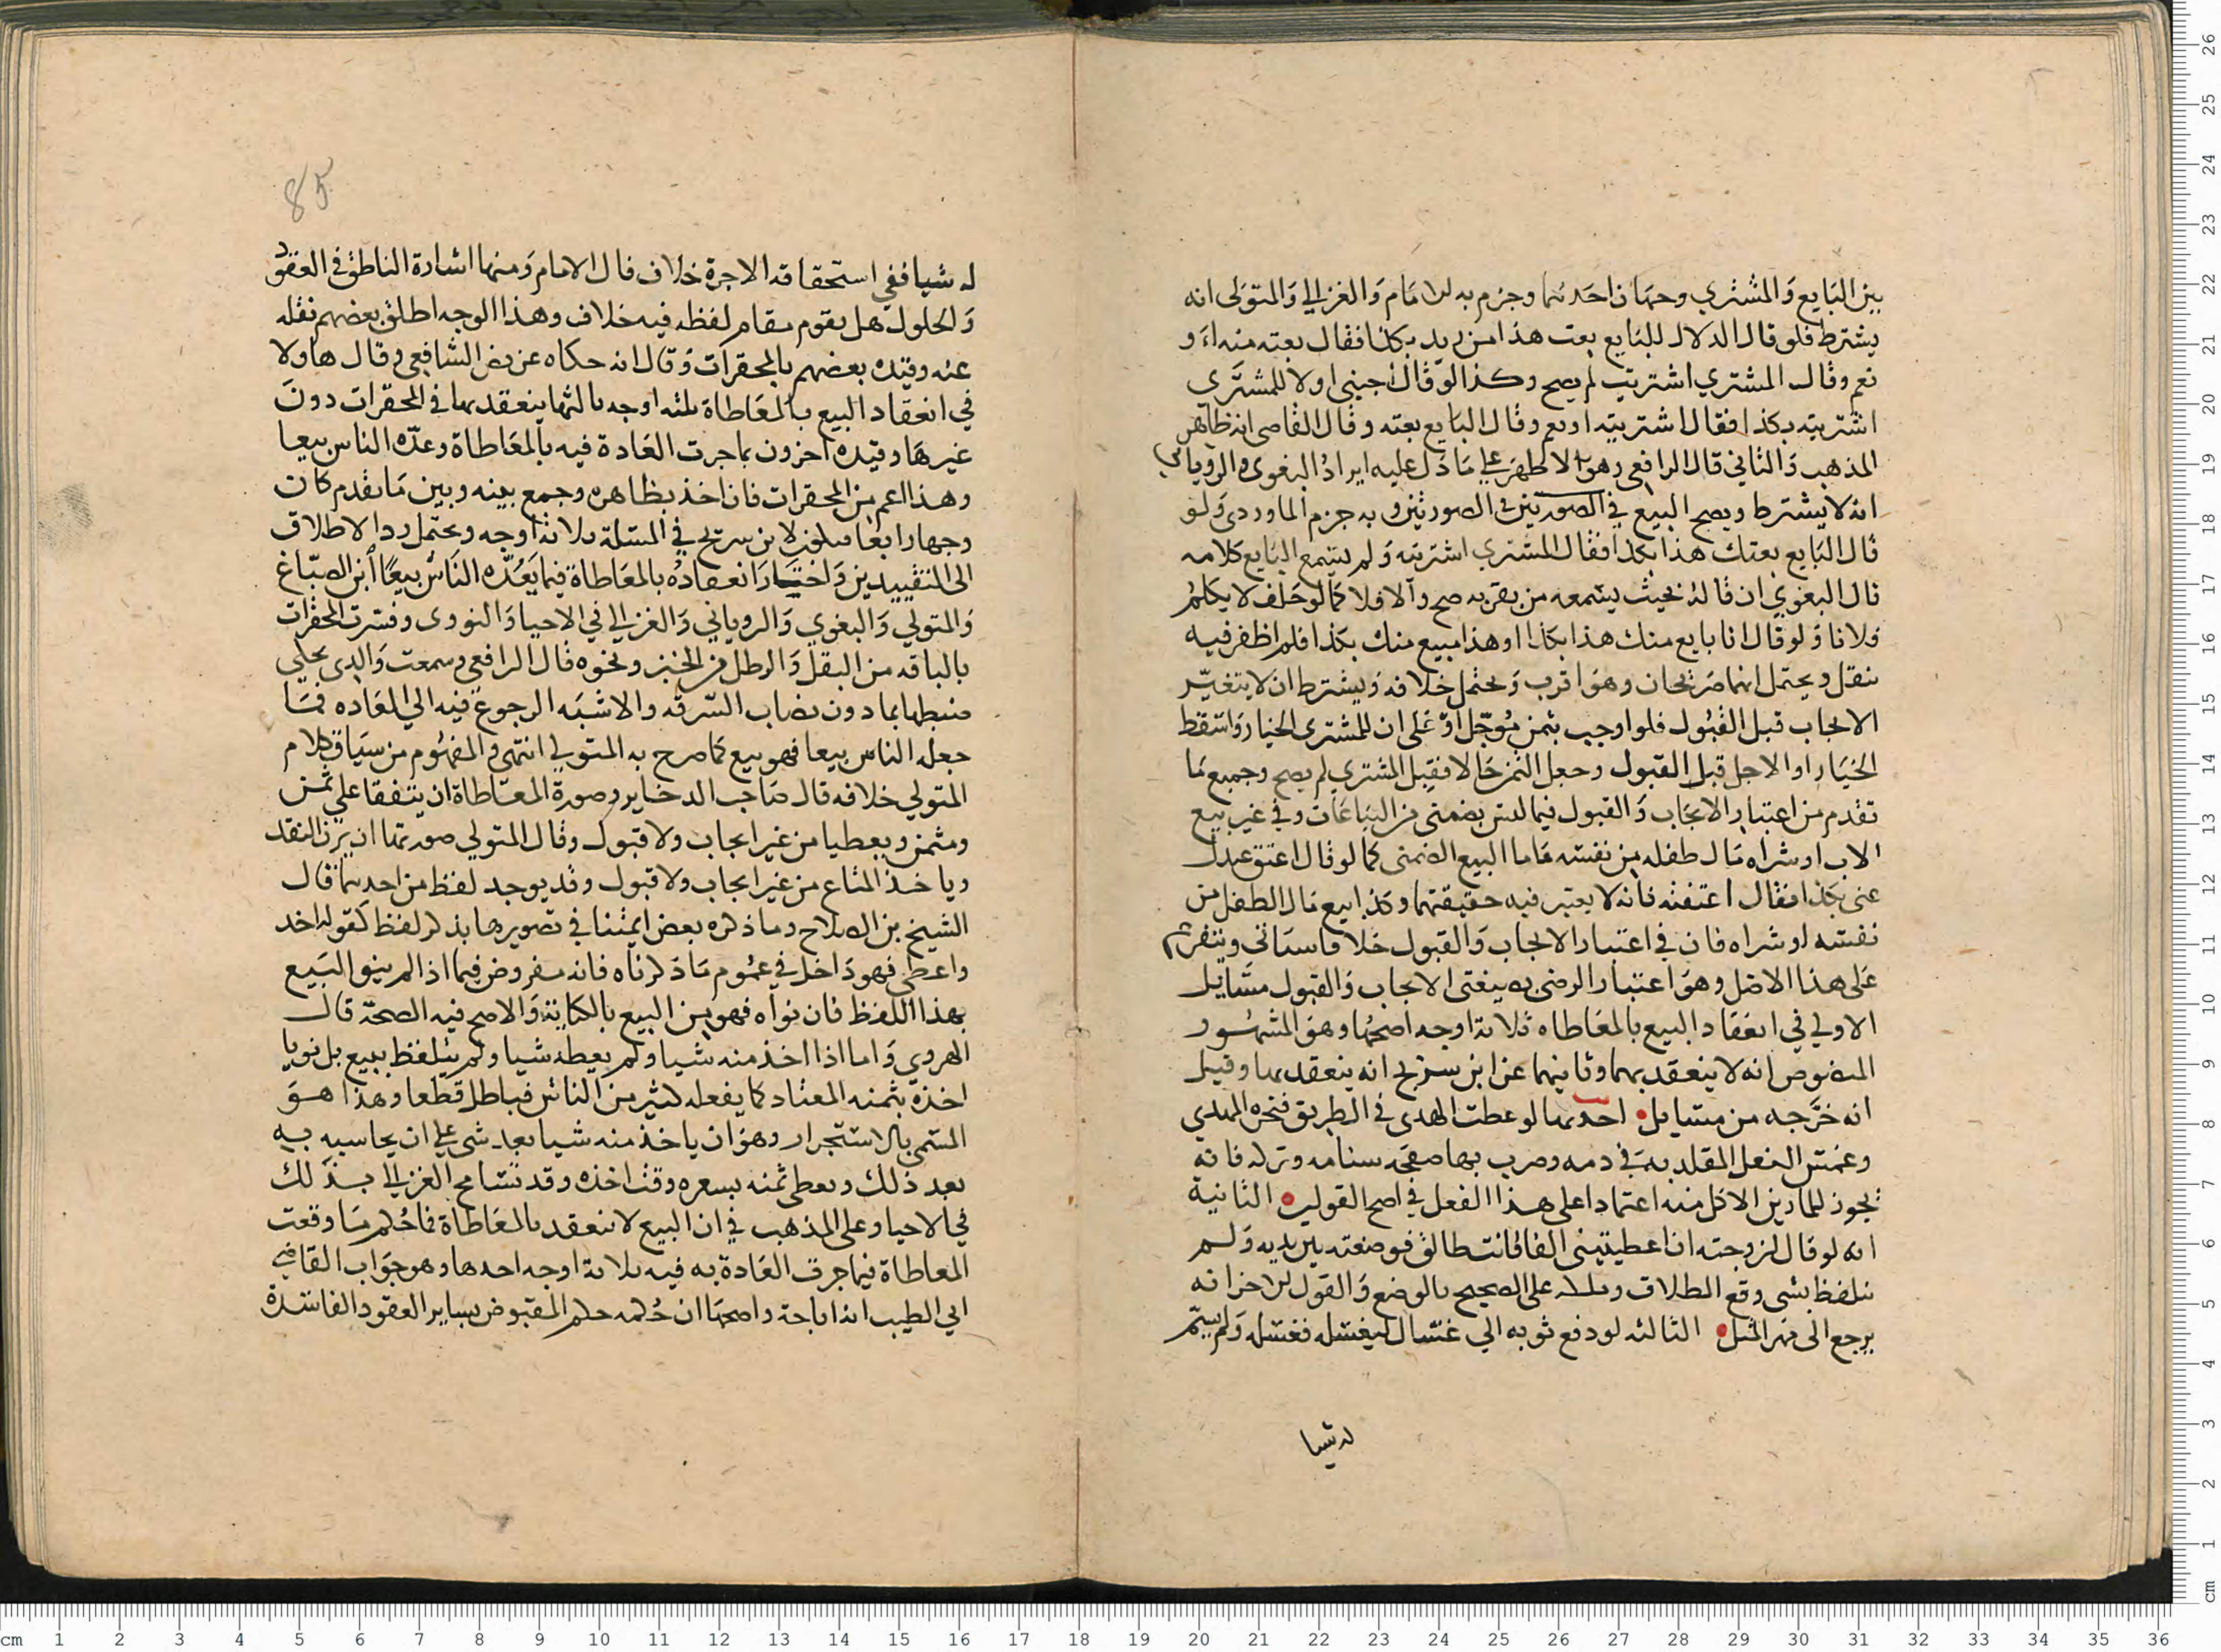 بين البايع والمشتري وجهان احدهما وجزم به الامام والغزالي والمتولى انه
يشترط فلو قال الدلال للبايع بعت هذا من زيد بكذا فقال بعته منه او
نعم وقال المشتري اشتريت لم يصح وكذا لو قال اجنبي اولا للمشتري
اشتريته بكذا فقال اشتريته او نعم وقال البايع بعته وقال القاصى انه ظاهر
المذهب والثاني قال الرافعى وهو الاظهر على ما دل عليه ايراد البغوى والروياني
انه لا يشترط ويصح البيع في الصورتين وبه جزم الماوردى ولو
قال البايع بعتك هذا بكذا فقال المشتري اشتريته ولم يسمع البايع كلامه
قال البغوي ان قاله بحيث يسمعه من بقربه صح والا فلا كما لو حلف لا يكلم
فلانا ولو قال انا بايع منك هذا بكذا او هذا مبيع منك بكذا فلم اظفر فيه
بنقل ويحتمل انهما صريحان وهو اقرب ويحتمل خلافه ويشترط ان لا يتغير
الايجاب قبل القبول فلو اوجب بثمن موجل او على ان للمشترى الخيار واسقط
الخيار او الاجل قبل القبول وجعل الثمن حالا فقبل المشتري لم يصح وجميع ما
تقدم من اعتبار الايجاب والقبول فيما ليس بضمنى من البياعات وفي غير بيع
الاب او شراه مال طفله من نفسه فاما البيع الضمنى كما لو قال اعتق عبدك
عنى بكذا فقال اعتقته فانه لا يعتبر فيه حقيقتهما وكذا بيع مال الطفل من
نفسه او شراه فان في اعتبار الايجاب والقبول خلافا سياتى ويتفرع
على هذا الاصل وهو اعتبار الرضى بصيغتى الايجاب والقبول مسايل
الاولي في انعقاد البيع بالمعاطاه ثلاثة اوجه اصحها وهو المشهور
المنصوص انه لا ينعقد بها وثانيهما عن ابن سريج انه ينعقد بها وقيل
انه خرجه من مسايل احدها لو عطب الهدى في الطريق فنحره المهدي
وغمس النعل المقلد به في دمه وضرب بها صفحة سنامه وتركه فانه
يجوز للمارين الاكل منه اعتمادا على هذا الفعل في اصح القولين الثانية
انه لو قال لزوجته ان اعطيتينى الفا فانت طالق فوضعته بين يديه ولم
تتلفظ بشى وقع الطلاق وملكه على الصحيح بالوضع والقول الاخر انه
يرجع الى مهر المثل الثالثه لو دفع ثوبه الي غسال ليغسله فغسله ولم يسم
له شيا
له شيا ففي استحقاقه الاجرة خلاف قال الامام ومنها اشارة الناطق في العقود
والحلول هل يقوم مقام لفظه فيه خلاف وهذا الوجه اطلق بعضهم نقله
عنه وقيده بعضهم بالمحقرات وقال انه حكاه عن نص الشافعي وقال هاولا
في انعقاد البيع بالمعاطاة ثلثه اوجه ثالثها ينعقد بها في المحقرات دون
غيرها وقيده اخرون بما جرت العادة فيه بالمعاطاة وعده الناس بيعا
وهذا اعم من المحقرات فان اخذ بظاهره وجمع بينه وبين ما تقدم كان
وجها رابعا فيكون لابن سريج في المسئلة ثلاثة اوجه ويحتمل رد الاطلاق
الى التقييدين واختار انعقاده بالمعاطاة فيما يعده الناس بيعا ابن الصباغ
والمتولي والبغوي والروياني والغزالي في الاحيا والنووى وفسرت المحقرات
بالباقه من البقل والرطل من الخبز ونحوه قال الرافعى وسمعت والدى يحكي
ضبطها بما دون نصاب السرقه والاشبه الرجوع فيه الي العاده فما
جعله الناس بيعا فهو بيع كما صرح به المتولي انتهى والمفهوم من سياق كلام
المتولي خلافه قال صاحب الدخاير وصورة المعاطاة ان يتفقا على ثمن
ومثمن ويعطيا من غير ايجاب ولا قبول وقال المتولي صورتها ان يزن النقد
وياخذ المتاع من غير ايجاب ولا قبول وقد يوجد لفظ من احدهما قال
الشيخ بن الصلاح وما ذكره بعض ايمتنا في تصويرها بذكر لفظ كقوله اخذ
واعطى فهو داخل في عموم ما ذكرناه فانه مفروض فيما اذا لم ينو البيع
بهذا اللفظ فان نواه فهو من البيع بالكناية والاصح فيه الصحة قال
الهروي واما اذا اخذ منه شيا ولم يعطه شيا ولم يتلفظ ببيع بل نويا
اخذه بثمنه المعتاد كما يفعله كثير من الناس فباطل قطعا وهذا هو
المسمى بالاستجرار وهو ان ياخذ منه شيا بعد شى على ان يحاسبه به
بعد ذلك ويعطى ثمنه بسعره وقت اخذه وقد تسامح الغزالي بذلك
في الاحيا وعلى المذهب في ان البيع لا ينعقد بالمعاطاة فما حكم ما وقعت
المعاطاة فيما جرت العادة به فيه ثلاثة اوجه احدها وهو جواب القاضي
ابي الطيب انه اباحة واصحها ان حكمه حكم المقبوض بساير العقود الفاسدة
85